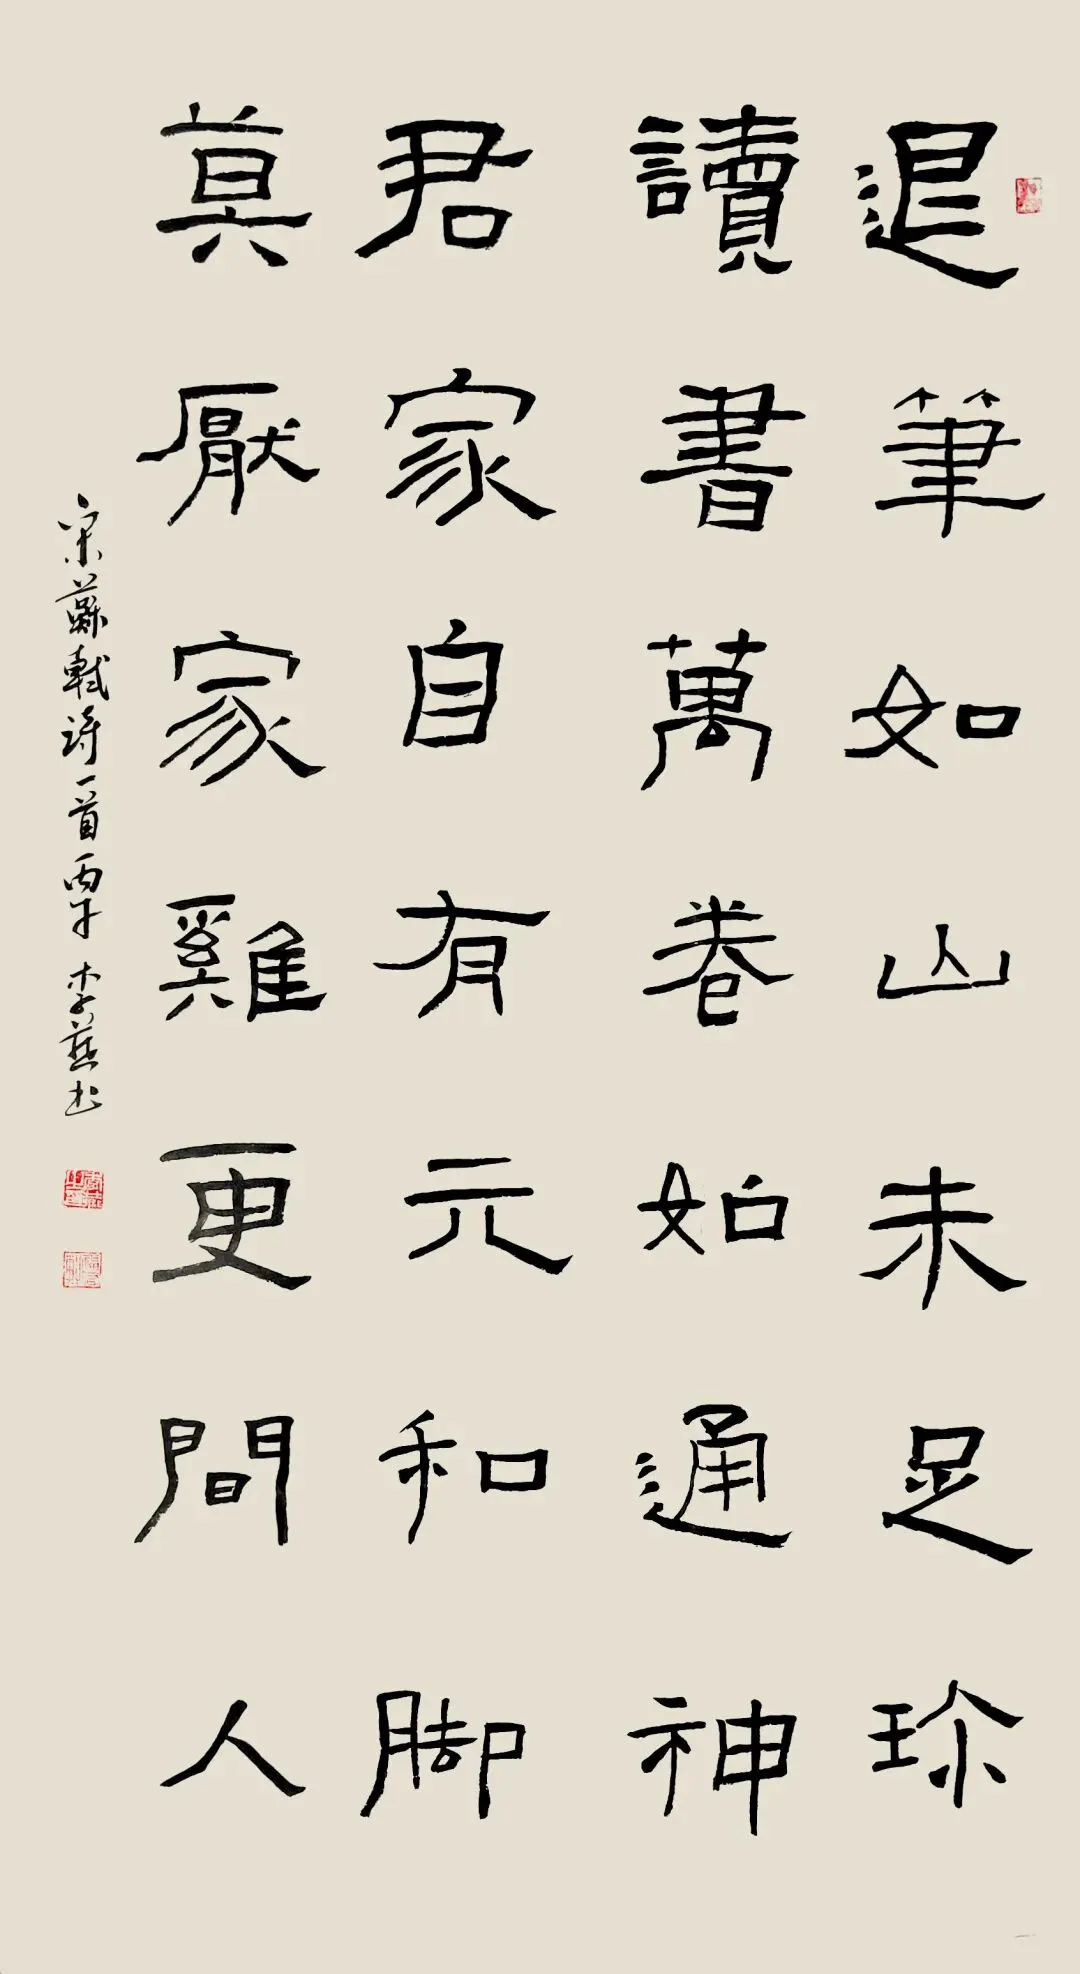 退筆如山未足珎
讀書萬卷如通神
君家自有元和脚
莫厭家雞更問人
宋蘇軾詩一首丙午李燕书